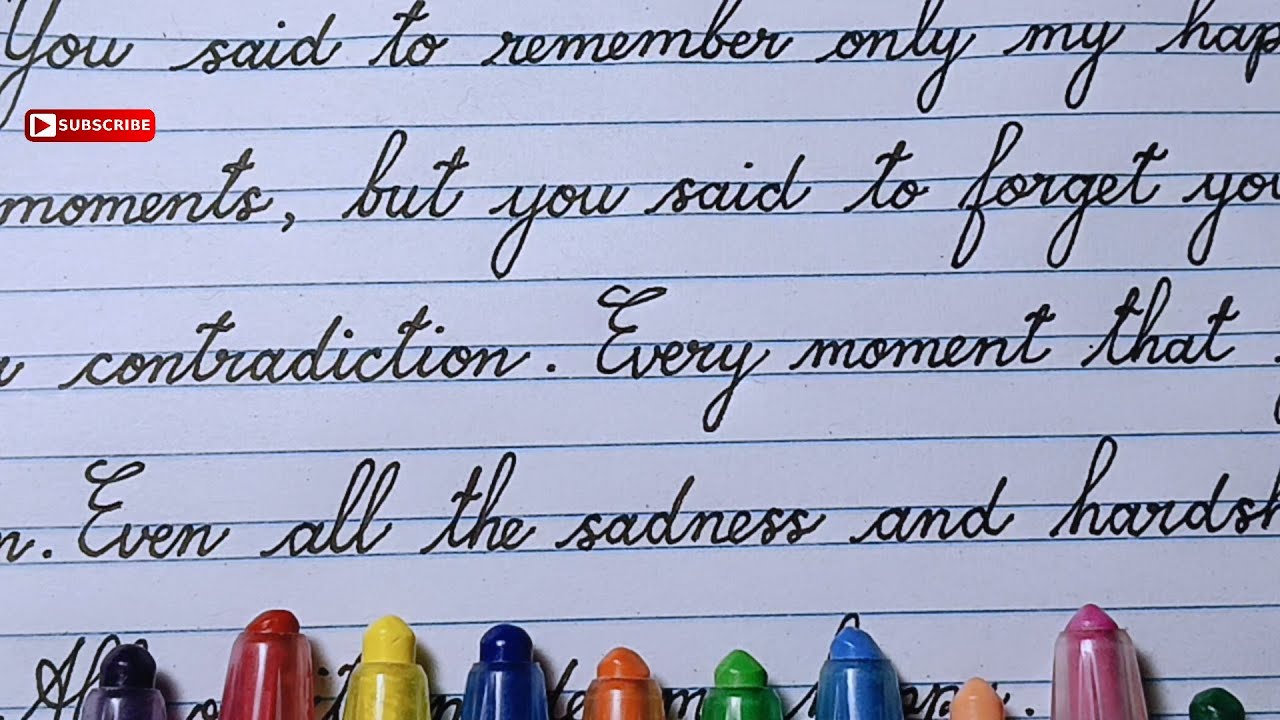 You said to remember only my hap
SUBSCRIBE
moments, but you said to forget you
contradiction. Every moment that
n. Even all the sadness and hardsh